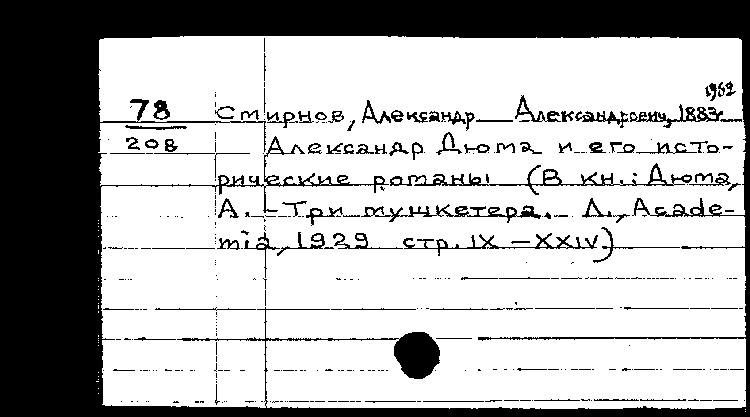 1962
78 Смирнов, Александр Александрович, 1883-
208 Александр Дюма и его исто-
рические романы (В кн.: Дюма,
А. - Три мушкетера. Л., Acade-
mia, 1929 стр. IX - XXIV.)